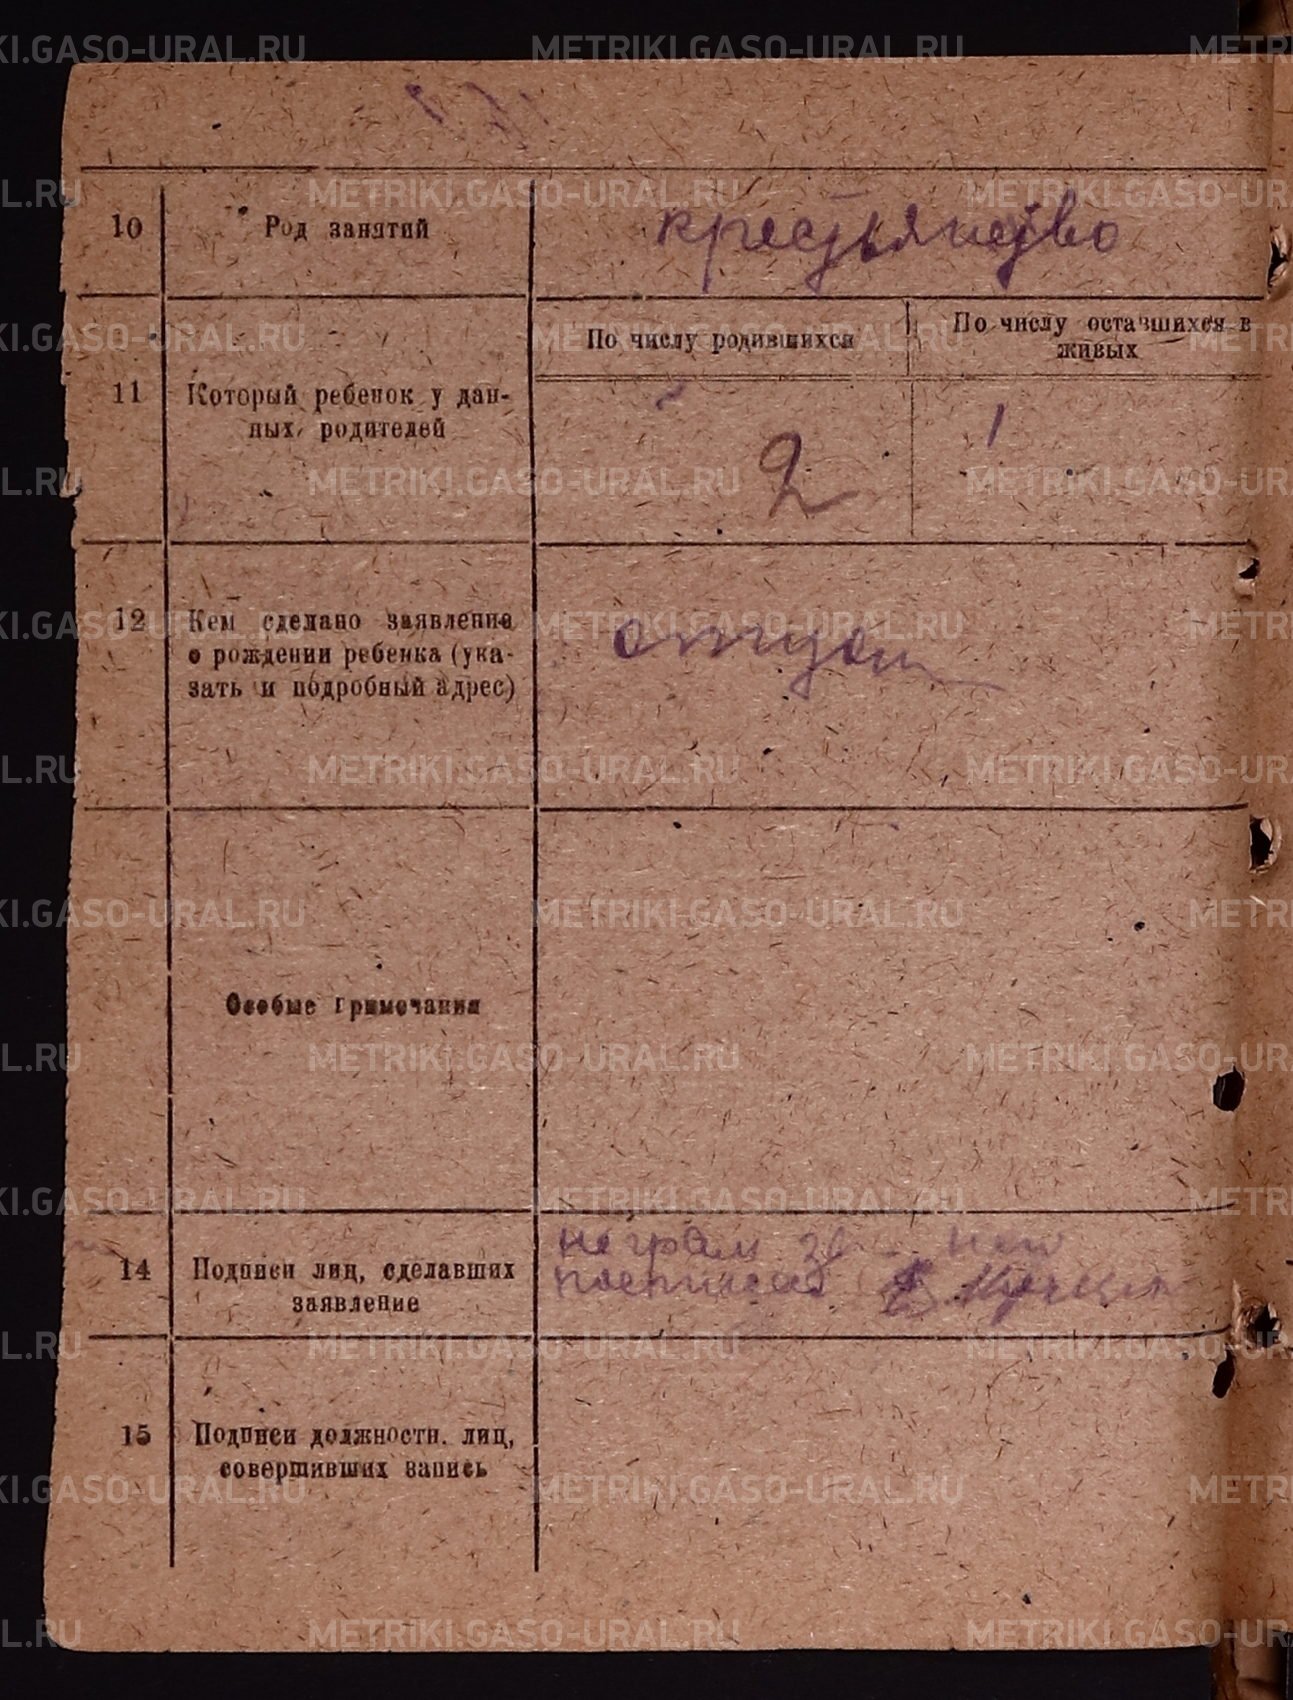 10
Род занятий
крестьянство
11
Который ребенок у дан-
ных родителей
По числу родившихся
По числу оставшихся в
живых
2
1
12
Кем сделано заявление
о рождении ребенка (ука-
зать и подробный адрес)
отцом
Особые примечания
14
Подписи лиц, сделавших
заявление
неграм за
15
Подписи должностн. лиц,
совершивших запись
METRIKI.GASO-URAL.RU